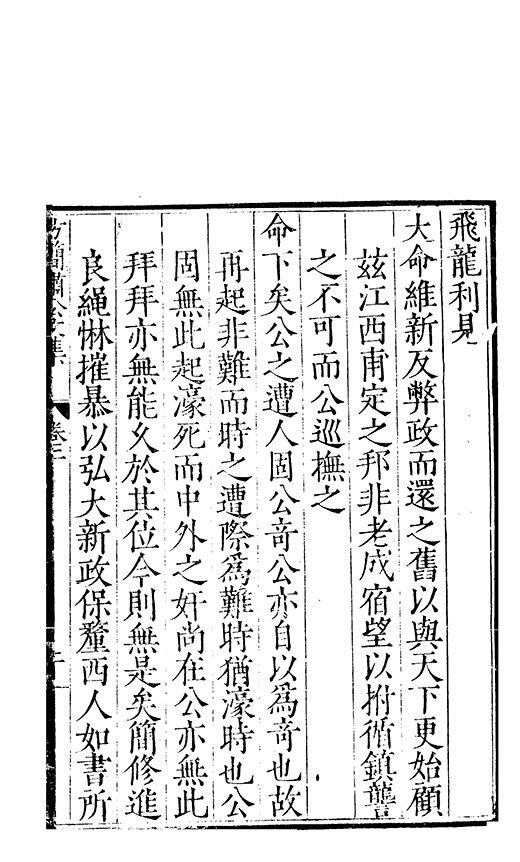 飛龍利見
大命維新反弊政而還之舊以與天下更始顧
茲江西甫定之邦非老成宿望以拊循鎮讋
之不可而公巡撫之
命下矣公之遭人固公竒公亦自以爲竒也故
再起非難而時之遭際爲難時猶濠時也公
固無此起濠死而中外之奸尚在公亦無此
拜拜亦無能久於其位今則無是矣簡修進
良繩惏摧暴以弘大新政保釐西人如書所
方簡肅公文集
卷三